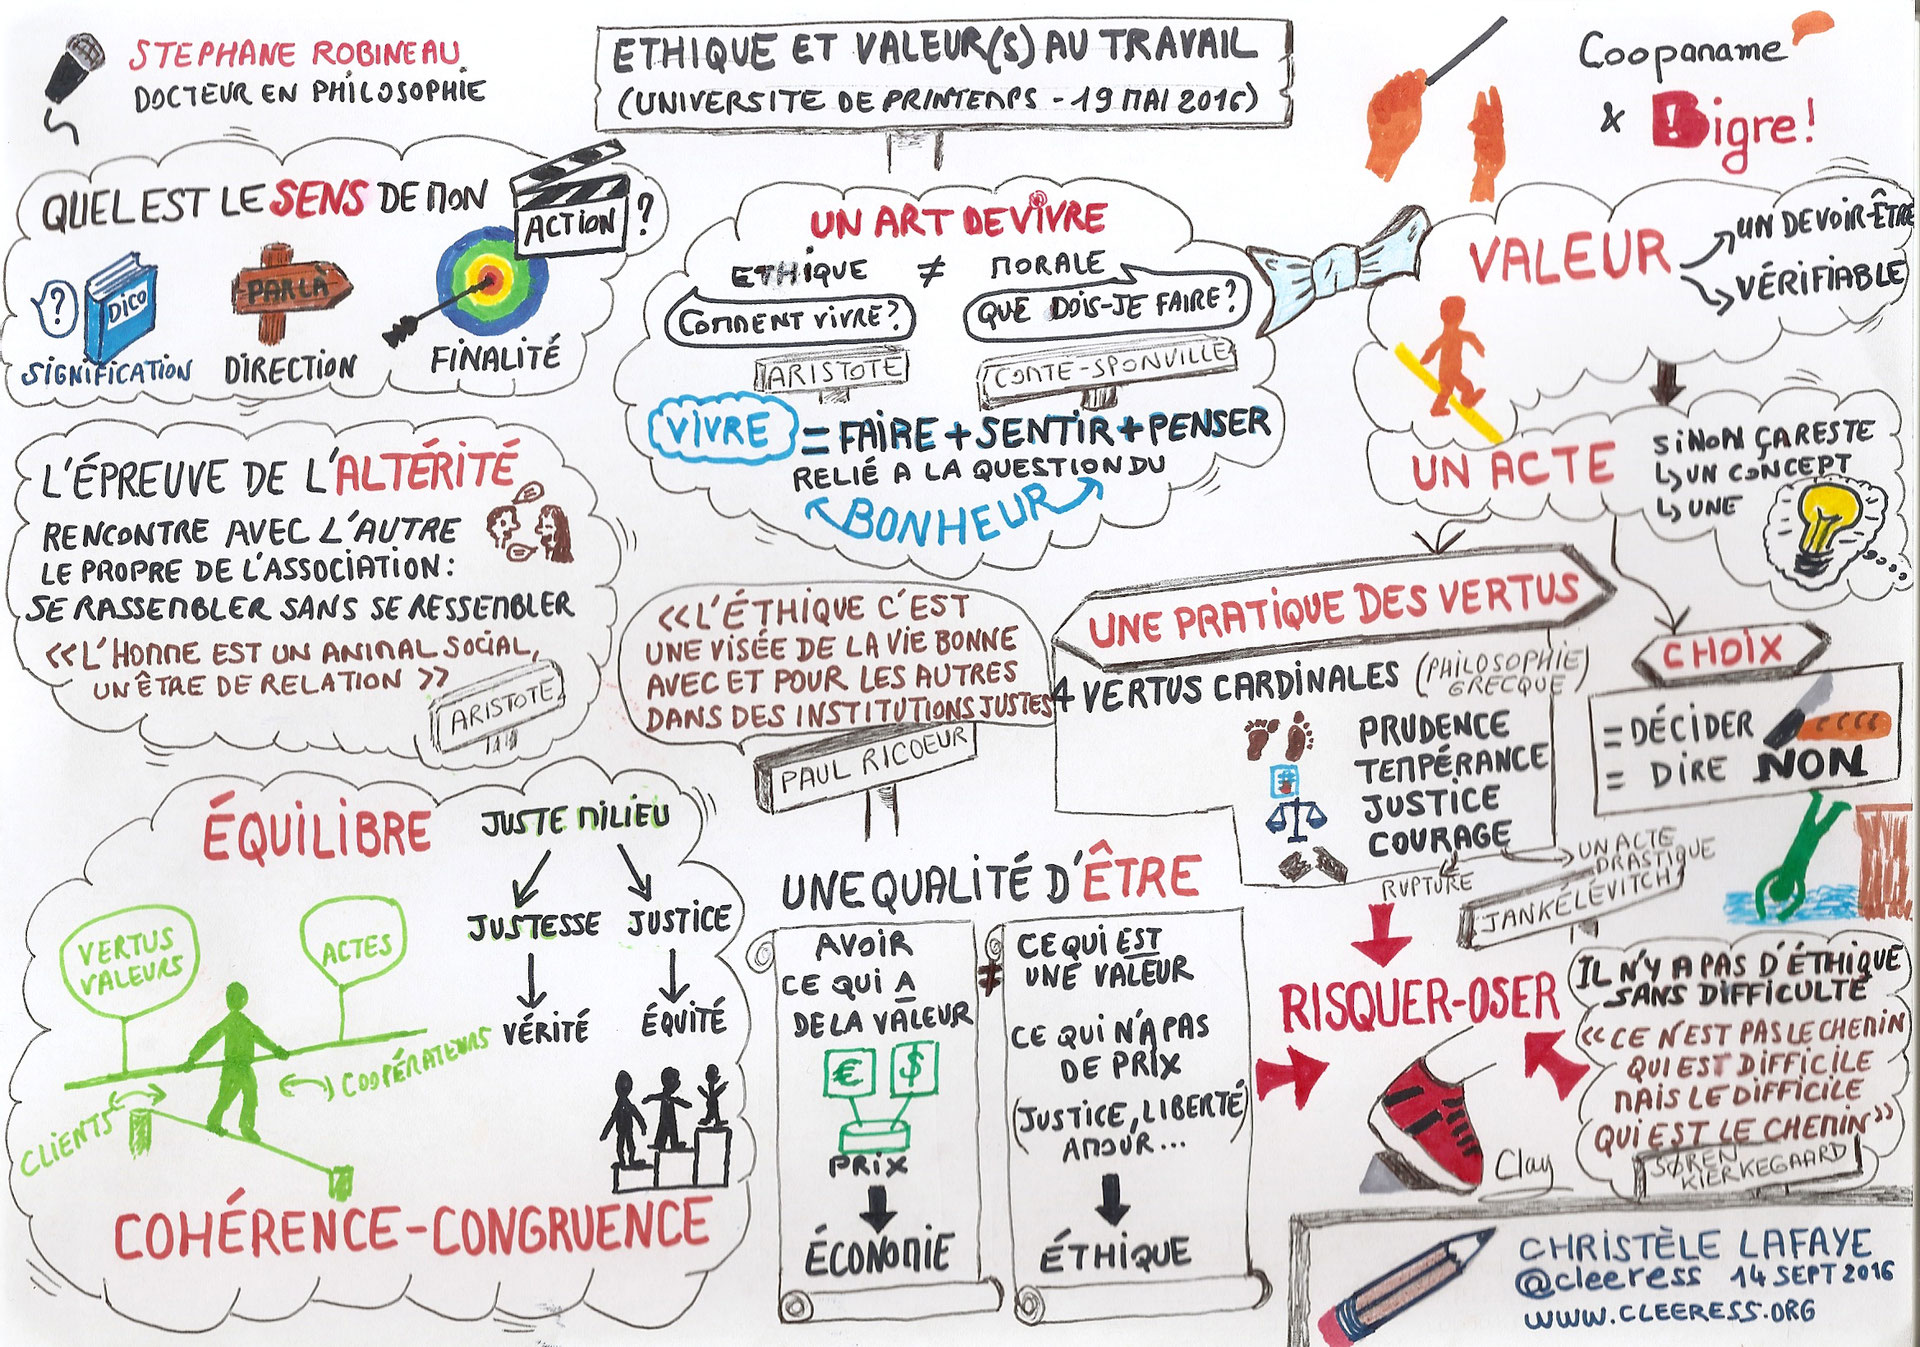 STEPHANE ROBINEAU
DOCTEUR EN PHILOSOPHIE
ETHIQUE ET VALEUR(S) AU TRAVAIL
(UNIVERSITE DE PRINTEMPS - 19 MAI 2016)
Coopaname
& Bigre!
QUEL EST LE SENS DE MON
ACTION ?
?
DICO
PAR LÀ
SIGNIFICATION
DIRECTION
FINALITÉ
UN ART DE VIVRE
ETHIQUE ≠ MORALE
COMMENT VIVRE?
QUE DOIS-JE FAIRE?
ARISTOTE
COMTE-SPONVILLE
VIVRE = FAIRE + SENTIR + PENSER
RELIÉ A LA QUESTION DU
BONHEUR
VALEUR
UN DEVOIR-ÊTRE
VÉRIFIABLE
UN ACTE
SINON ÇA RESTE
↳ UN CONCEPT
↳ UNE
L'ÉPREUVE DE L'ALTÉRITÉ
RENCONTRE AVEC L'AUTRE
LE PROPRE DE L'ASSOCIATION:
SE RASSEMBLER SANS SE RESSEMBLER
<<L'HOMME EST UN ANIMAL SOCIAL,
UN ÊTRE DE RELATION >>
ARISTOTE
<<L'ÉTHIQUE C'EST
UNE VISÉE DE LA VIE BONNE
AVEC ET POUR LES AUTRES
DANS DES INSTITUTIONS JUSTES
PAUL RICOEUR
UNE PRATIQUE DES VERTUS
4 VERTUS CARDINALES (PHILOSOPHIE
GRECQUE)
PRUDENCE
TEMPÉRANCE
JUSTICE
COURAGE
RUPTURE
UN ACTE
DRASTIQUE
JANKÉLÉVITCH
CHOIX
= DÉCIDER
= DIRE NON
ÉQUILIBRE
JUSTE MILIEU
JUSTESSE JUSTICE
VÉRITÉ
ÉQUITÉ
VERTUS
VALEURS
ACTES
CLIENTS
COOPÉRATEURS
COHÉRENCE-CONGRUENCE
UNE QUALITÉ D'ÊTRE
AVOIR
CE QUI A
DE LA VALEUR
€ $
PRIX
ÉCONOMIE
≠
CE QUI EST
UNE VALEUR
CE QUI N'A PAS
DE PRIX
(JUSTICE, LIBERTÉ)
AMOUR...
ÉTHIQUE
RISQUER-OSER
Clay
IL N'Y A PAS D'ÉTHIQUE
SANS DIFFICULTÉ
<<CE N'EST PAS LE CHEMIN
QUI EST DIFFICILE
MAIS LE DIFFICILE
QUI EST LE CHEMIN>>
SØREN
KIERKEGAARD
CHRISTÈLE LAFAYE
@cleeress 14 SEPT 2016
WWW.CLEERESS.ORG